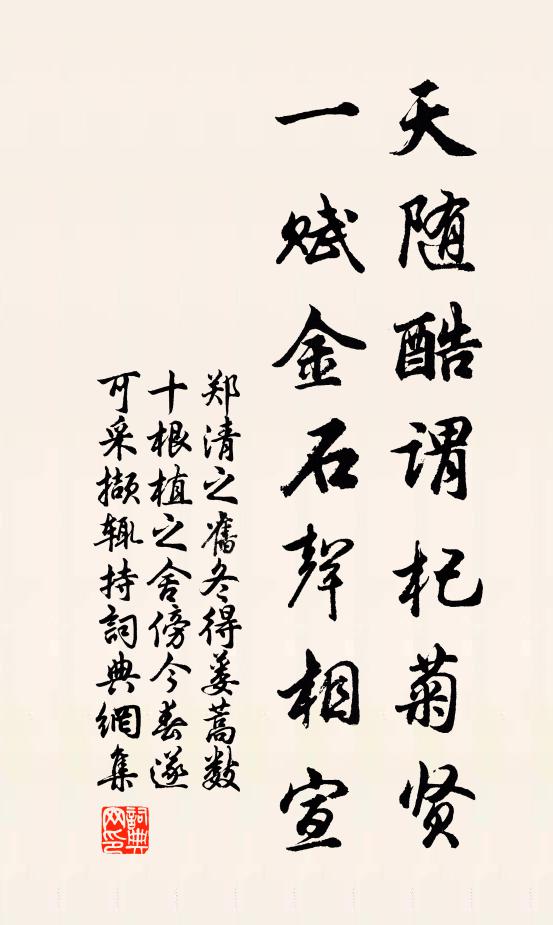 天随酷谓杞菊贤
一赋金石声相宣
郑清之旧冬得蒌蒿数
十根植之舍傍今春遂
可采撷辄持詞典網集
詞典
网印